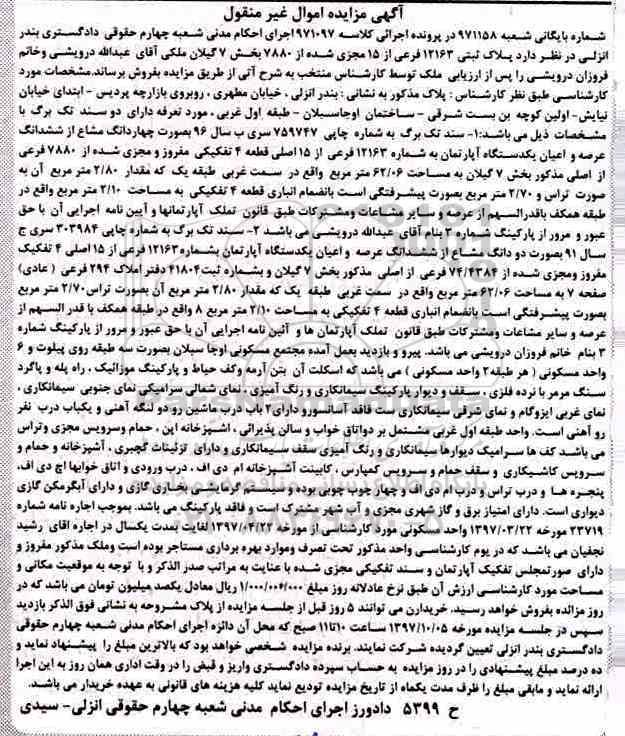 آگهی مزایده اموال غیر منقول
شماره بایگانی شعبه ۹۷۱۱۵۸ در پرونده اجرائی کلاسه ۹۷۱۰۹۷ اجرای احکام مدنی شعبه چهارم حقوقی دادگستری بندر
انزلی در نظر دارد پلاک ثبتی ۱۲۱۶۳ فرعی از ۱۵ مجزی شده از ۷۸۸۰ بخش ۷ گیلان ملکی آقای عبدالله درویشی وخانم
فروزان درویشی را پس از ارزیابی ملک توسط کارشناس منتخب به شرح آتی از طریق مزایده بفروش برساند.مشخصات مورد
کارشناسی طبق نظر کارشناس : پلاک مذکور به نشانی : بندر انزلی ، خیابان مطهری ، روبروی بازارچه پردیس - ابتدای خیابان
نیایش - اولین کوچه بن بست شرقی - ساختمان اوجاسبلان - طبقه اول غربی ، مورد تعرفه دارای دو سند تک برگ با
مشخصات ذیل می باشد:۱- سند تک برگ به شماره چاپی ۷۵۹۷۴۷ سری ب سال ۹۶ بصورت چهاردانگ مشاع از ششدانگ
عرصه و اعیان یکدستگاه آپارتمان به شماره ۱۲۱۶۳ فرعی از ۱۵ اصلی قطعه ۴ تفکیکی مفروز و مجزی شده از ۷۸۸۰ فرعی
از اصلی مذکور بخش ۷ گیلان به مساحت ۶۲/۰۶ متر مربع واقع در سمت غربی طبقه یک که مقدار ۲/۸۰ متر مربع آن به
صورت تراس و ۲/۷۰ متر مربع بصورت پیشرفتگی است بانضمام انباری قطعه ۴ تفکیکی به مساحت ۲/۱۰ متر مربع واقع در
طبقه همکف باقدرالسهم از عرصه و سایر مشاعات ومشترکات طبق قانون تملک آپارتمانها و آیین نامه اجرایی آن با حق
عبور و مرور از پارکینگ شماره ۳ بنام آقای عبدالله درویشی می باشد ۲- سند تک برگ به شماره چاپی ۳۰۳۹۸۴ سری ج
سال ۹۱ بصورت دو دانگ مشاع از ششدانگ عرصه و اعیان یکدستگاه آپارتمان بشماره ۱۲۱۶۳ فرعی از ۱۵ اصلی ۴ تفکیک
مفروز ومجزی شده از ۷۴/۴۳۸۴ فرعی از اصلی مذکور بخش ۷ گیلان و بشماره ثبت ۴۱۸۰۴ دفتر املاک ۲۹۴ فرعی ( عادی)
صفحه ۷ به مساحت ۶۲/۰۶ متر مربع واقع در سمت غربی طبقه یک که مقدار ۲/۸۰ متر مربع آن بصورت تراس ۲/۷۰ متر مربع
بصورت پیشرفتگی است بانضمام انباری قطعه ۴ تفکیکی به مساحت ۲/۱۰ متر مربع ۸ واقع در طبقه همکف با قدر السهم از
عرصه و سایر مشاعات ومشترکات طبق قانون تملک آپارتمان ها و آئین نامه اجرایی آن با حق عبور و مرور از پارکینگ شماره
۳ بنام خانم فروزان درویشی می باشد. پیرو و بازدید بعمل آمده مجتمع مسکونی اوجا سبلان بصورت سه طبقه روی پیلوت و ۶
واحد مسکونی ( هر طبقه ۲ واحد مسکونی ) می باشد که اسکلت آن بتن آرمه وکف حیاط و پارکینگ موزائیک ، راه پله و پاگرد
سنگ مرمر با نرده فلزی ، سقف و دیوار پارکینگ سیمانکاری و رنگ آمیزی ، نمای شمالی سرامیکی نمای جنوبی سیمانکاری ،
نمای غربی ایزوگام و نمای شرقی سیمانکاری ست فاقد آسانسورو دارای ۲ باب درب ماشین رو دو لنگه آهنی و یکباب درب نفر
رو آهنی است. واحد طبقه اول غربی مشتمل بر دواتاق خواب و سالن پذیرائی ، آشپزخانه اپن ، حمام وسرویس مجزی وتراس
می باشد کف ها سرامیک دیوارها سیمانکاری و رنگ آمیزی سقف سیمانکاری و دارای تزئینات گچبری ، آشپزخانه و حمام و
سرویس کاشیکاری و سقف حمام و سرویس کمپارس ، کابینت آشپزخانه ام دی اف ، درب ورودی و اتاق خوابها اچ دی اف،
پنجره ها و درب تراس و درب ام دی اف و چهار چوب چوبی بوده و سیستم گرمایشی بخاری گازی و دارای آبگرمکن گازی
دیواری است. دارای امتیاز برق و گاز شهری مجزی و آب شهر مشترک است و فاقد پارکینگ می باشد. بموجب اجاره نامه شماره
۲۳۷۱۹ مورخه ۱۳۹۷/۰۳/۲۲ واحد مسکونی مورد کارشناسی از مورخه ۱۳۹۷/۰۴/۲۲ لغایت بمدت یکسال در اجاره اقای رشید
نجفیان می باشد که در یوم کارشناسی واحد مذکور تحت تصرف وموارد بهره برداری مستاجر بوده است وملک مذکور مفروز و
دارای صورتمجلس تفکیک آپارتمان و سند تفکیکی مجزی شده با عنایت به مراتب صدر الذکر و با توجه به موقعیت مکانی و
مساحت مورد کارشناسی ارزش آن طبق نرخ عادلانه روز مبلغ ۱/۰۰۰/۰۰۰/۰۰۰ ریال معادل یکصد میلیون تومان می باشد که در
روز مزائده بفروش خواهد رسید. خریدارن می توانند ۵ روز قبل از جلسه مزایده از پلاک مشروحه به نشانی فوق الذکر بازدید
سپس در جلسه مزایده مورخه ۱۳۹۷/۱۰/۰۵ ساعت ۱۰تا۱۱ صبح که محل آن دائره اجرای احکام مدنی شعبه چهارم حقوقی
دادگستری بندر انزلی تعیین گردیده شرکت نمایند. برنده مزایده شخصی خواهد بود که بالاترین مبلغ را پیشنهاد نماید و
ده درصد مبلغ پیشنهادی را در روز مزایده به حساب سپرده دادگستری واریز و قبض را در وقت اداری همان روز به این اجرا
ارائه نماید و مابقی مبلغ را ظرف مدت یکماه از تاریخ مزایده تودیع نماید کلیه هزینه های قانونی به عهده خریدار می باشد.
ح ۵۳۹۹ دادورز اجرای احکام مدنی شعبه چهارم حقوقی انزلی- سیدی